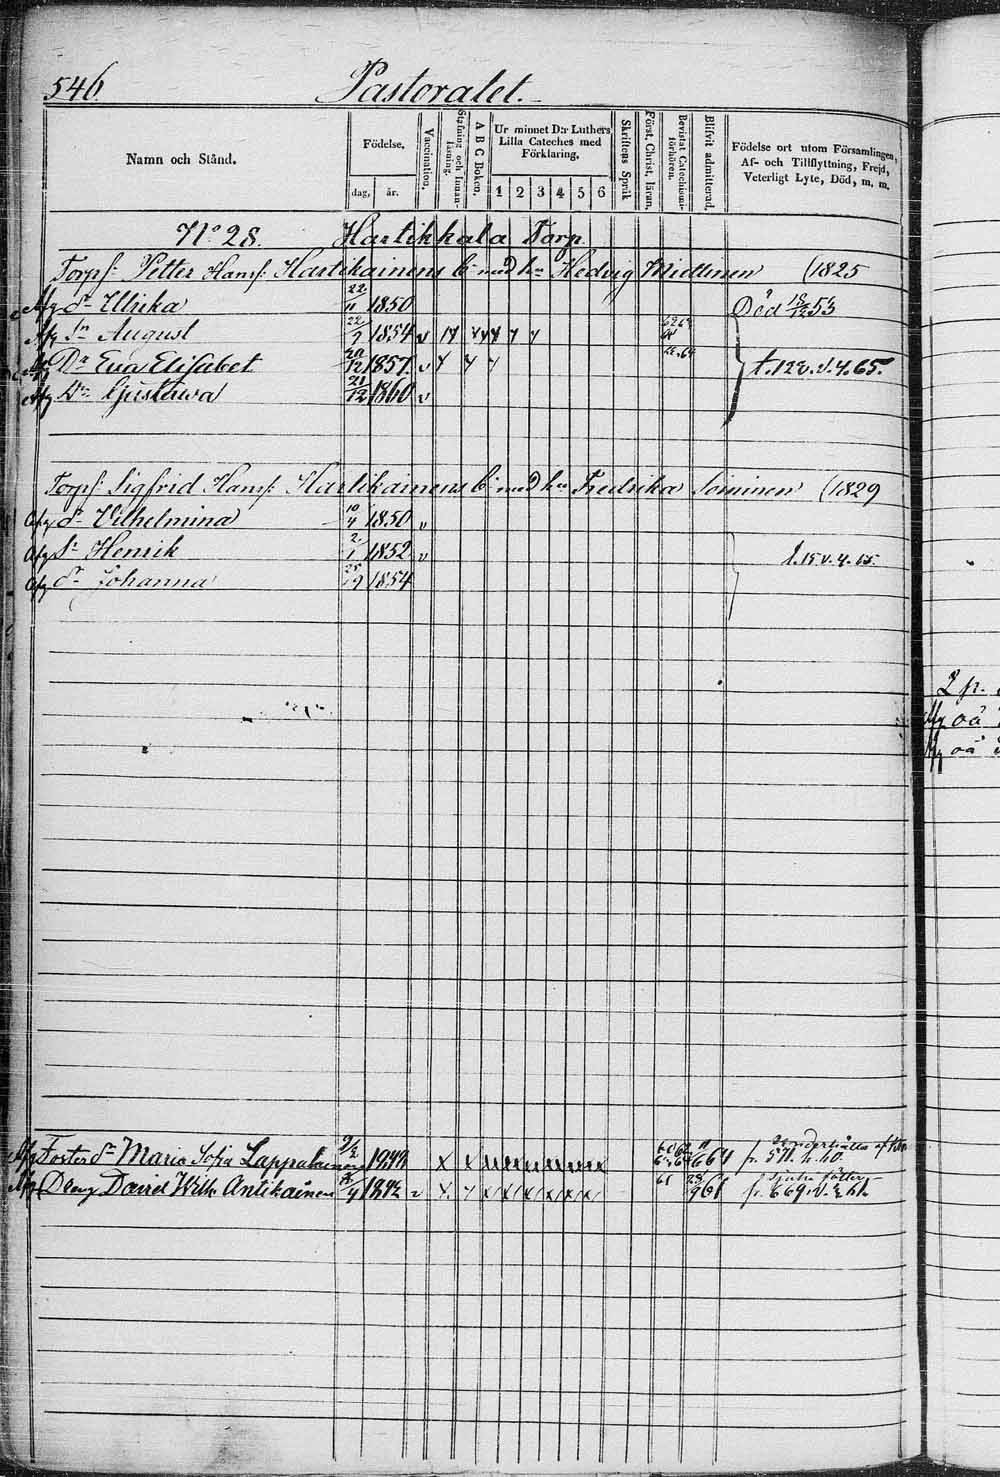 546. Pastoralet.
Namn och Stånd. Födelse. dag. år. Vaccination. Stafning och Innanläsning. A B C Boken. Ur minnet D:r Luthers Lilla Cateches med Förklaring. 1 2 3 4 5 6 Skriftens Språk Först. Christ. läran. Bevistat Catechismiförhören. Blifvit admitterad. Födelse ort utom Församlingen, Af- och Tillflyttning, Frejd, Veterligt Lyte, Död, m. m.
No 28. Hartikkala Torp.
Torpf: Petter Hansf: Hartikainens b: med h:u Hedvig Miettinen (1825
Afg dr Ulrika 22/11 1850 Död 18/12 53
Afg Sn August 22/9 1854 v
Dr Eva Elisabet 20/12 1857. v t. 12 v. 1/4. 65.
Afg Dr Gustawa 21/12 1860 v
Torpf: Sigfrid Hansf: Hartikainens b: med h:u Fredrika Soininen (1829
Afg dr Vilhelmina 10/4 1850 v
Afg Sn Henrik 2/1 1852 v t. 15 v. 4. 65.
Afg dr Johanna 25/9 1854
Afg Foster dr Maria Sofia Lappalainen
Afg Dräng David Wilh. Antikainen 1842 v 61
2 p.
oä
oä